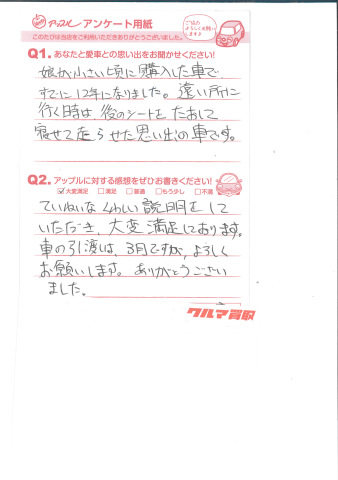 アップル アンケート用紙
ご協力
よろしくお願い
します♪
このたびは当店をご利用いただきありがとうございました。
Q1. あなたと愛車との思い出をお聞かせください!
娘が小さい頃に購入した車で
すでに12年になりました。遠い所に
行く時は、後のシートをたおして
寝せて走らせた思い出の車です。
Q2. アップルに対する感想をぜひお書きください!
☑大変満足 □満足 □普通 □もう少し □不満
ていねいなくわしい説明をして
いただき、大変満足しております。
車の引渡は、3月ですが、よろしく
お願いします。ありがとうござい
ました。
クルマ買取